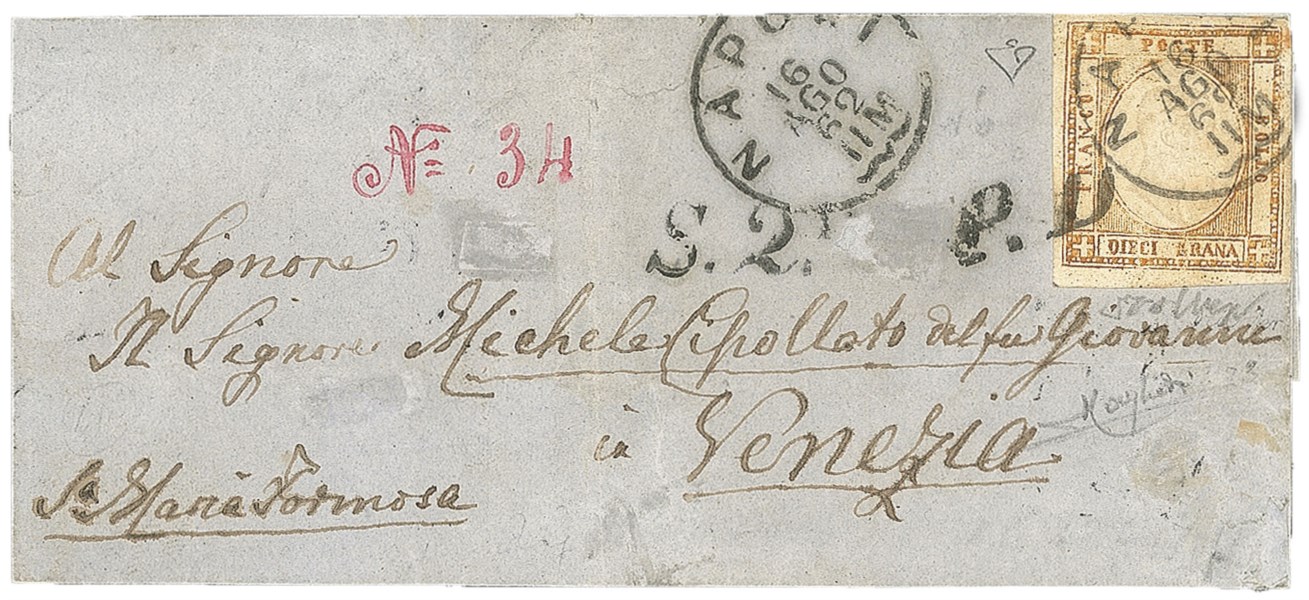 NAPOLI
16
AGO
62
11 M
NAP
16
AGO
6
11 M
POSTE
FRANCO
BOLLO
DIECI GRANA
Nº 34
S. 2.
P. D
Al Signore
Il Signore Michele Cipollato del fu Giovanni
in Venezia
Sa Maria Formosa